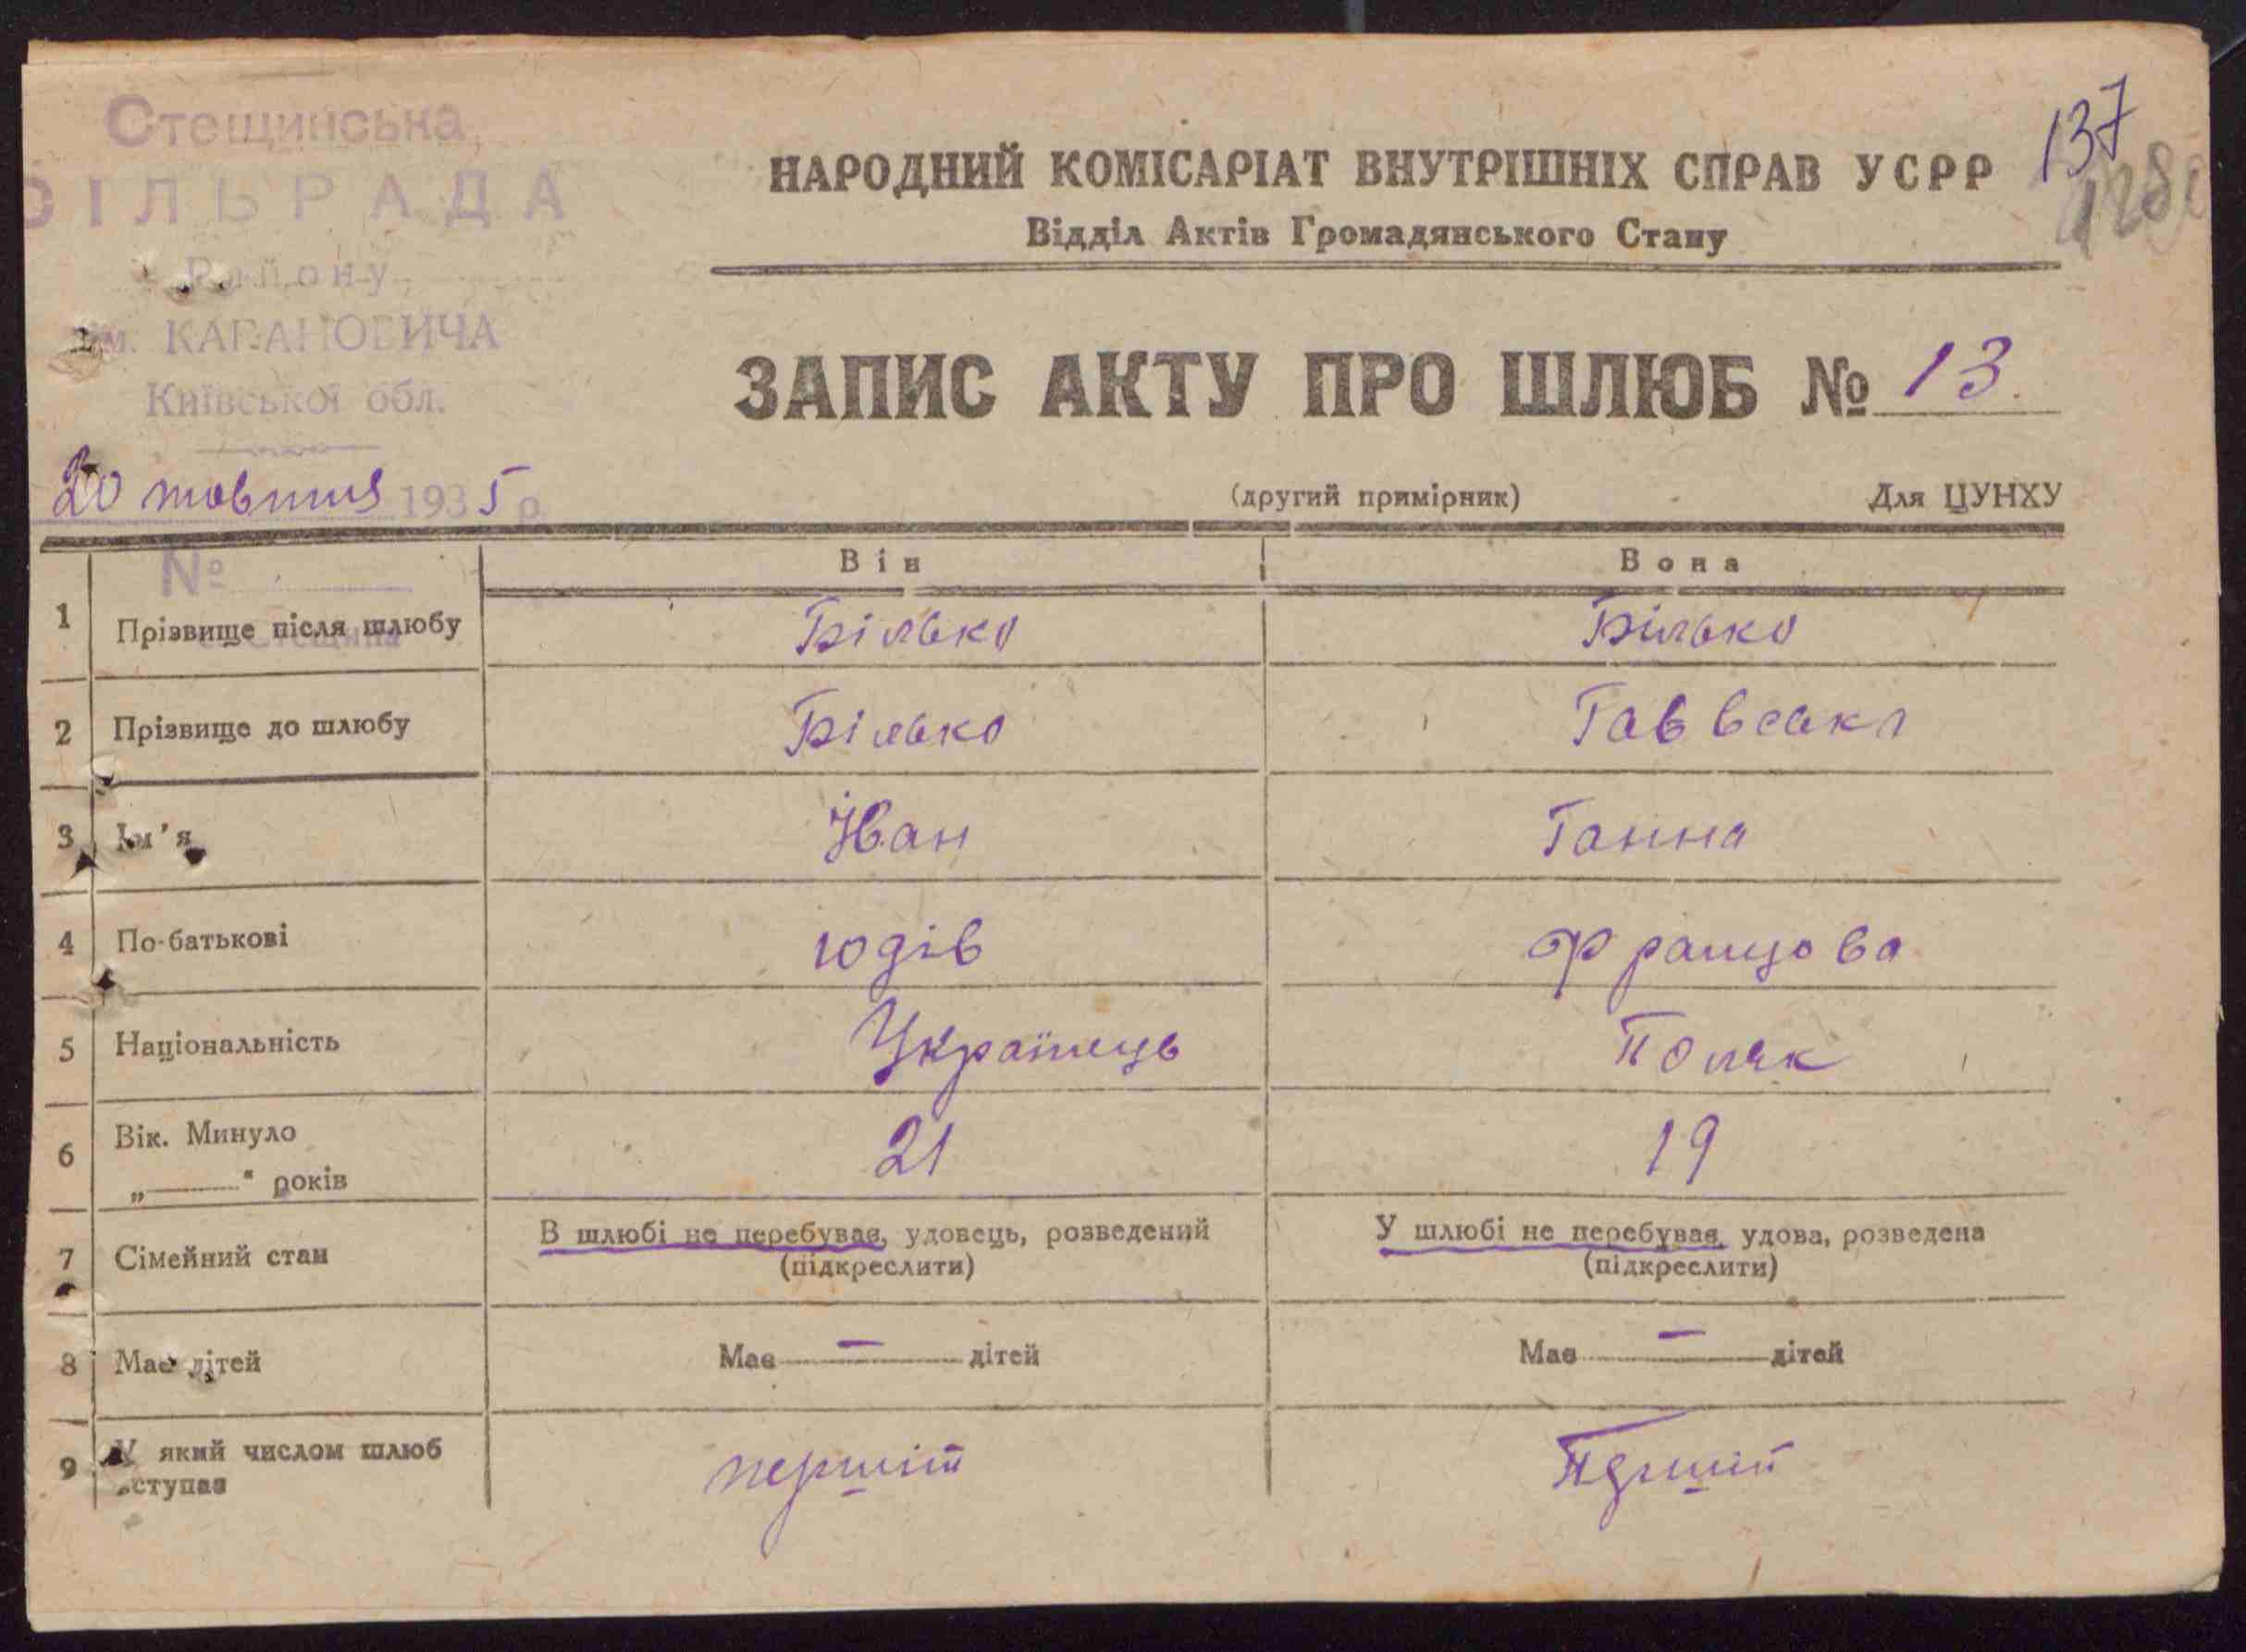 Стещинська
СІЛЬРАДА
Району
ім. КАГАНОВИЧА
Київської обл.
20 жовтня 1935 р.
№
с. Стещина
137
НАРОДНИЙ КОМІСАРІАТ ВНУТРІШНІХ СПРАВ УСРР
Відділ Актів Громадянського Стану
ЗАПИС АКТУ ПРО ШЛЮБ № 13.
(другий примірник) Для ЦУНХУ
Він Вона
1 Прізвище після шлюбу Білько Білько
2 Прізвище до шлюбу Білько
3 Ім'я Іван Ганна
4 По-батькові юдів Францова
5 Національність Українець Поляк
6 Вік. Минуло 21 19
„ “ років
7 Сімейний стан В шлюбі не перебував, удовець, розведений У шлюбі не перебував, удова, розведена
(підкреслити) (підкреслити)
8 Має дітей Має — дітей Має — дітей
9 У який числом шлюб першій Першій
вступав